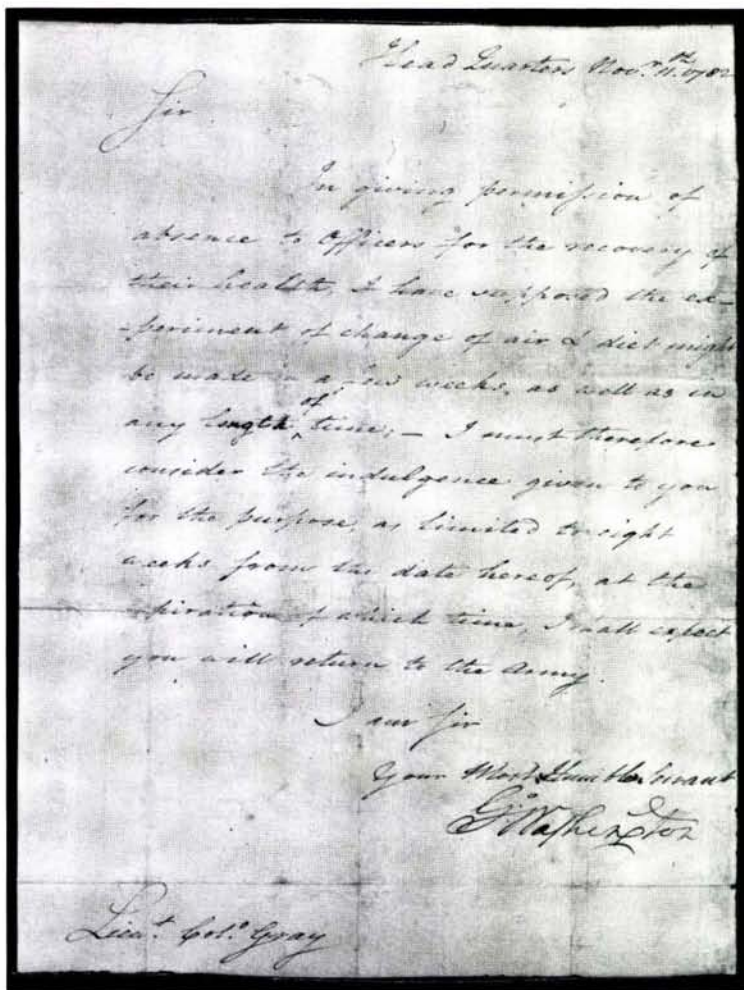 Head Quarters Nov.r 11.th 1782
Sir
In giving permission of
absence to Officers for the recovery of
their health, I have supposed the ex-
-periment of change of air & diet might
be made in a few weeks, as well as in
any length of time; — I must therefore
consider the indulgence given to you
for the purpose, as limited to eight
weeks from the date hereof, at the
expiration of which time, I shall expect
you will return to the Army.
I am Sir
Your Most Humble Servant
G.o Washington
Lieu.t Col.o Gray